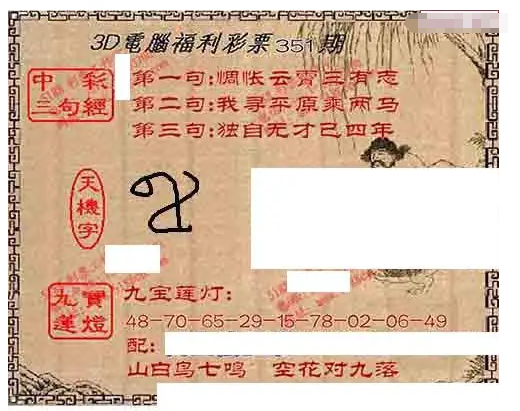 3D電腦福利彩票351期
中彩三句經
第一句:惆怅云霄三有志
第二句:我寻平原乘两马
第三句:独自无才已四年
天機字
九寶蓮燈
九宝莲灯:
48-70-65-29-15-78-02-06-49
配:
山白鸟七鸣 空花对九落